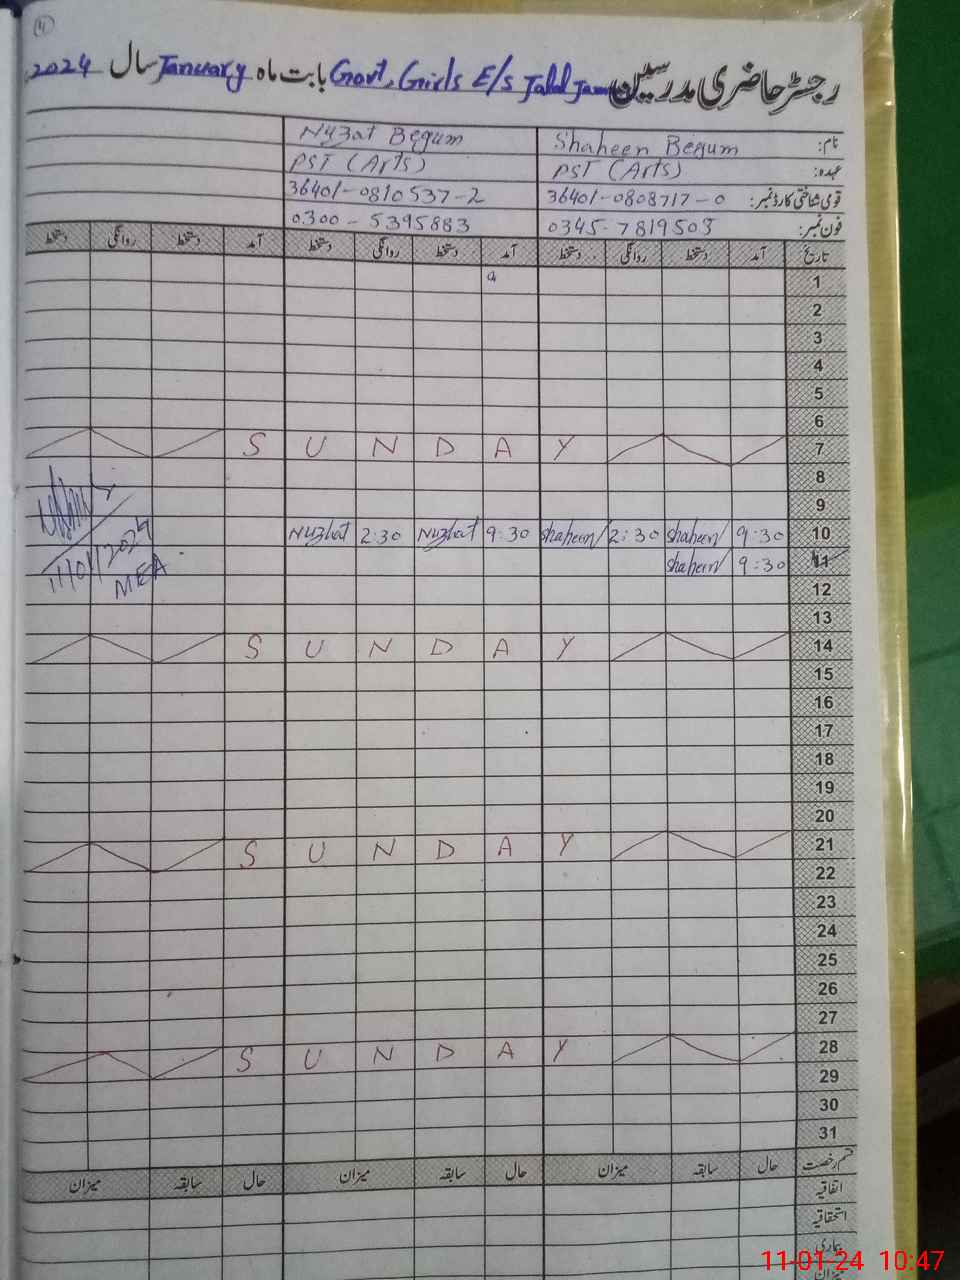 4
رجسٹر حاضری مدرسین Govt, Girls E/s Jalal بابت ماہ January سال 2024
نام: Shaheen Begum Nuzat Begum
عہدہ: PST (Arts) PST (Arts)
قومی شناختی کارڈ نمبر: 36401-0808717-0 36401-0810537-2
فون نمبر: 0345-7819503 0300-5395883
تاریخ آمد دستخط روانگی دستخط آمد دستخط روانگی دستخط آمد دستخط روانگی دستخط
1 a
2
3
4
5
6
7 S U N D A Y
8
9
10 9:30 Shaheen 2:30 Shaheen 9:30 Nuzhat 2:30 Nuzhat
11 9:30 Shaheen
11/01/2024
MEA
12
13
14 S U N D A Y
15
16
17
18
19
20
21 S U N D A Y
22
23
24
25
26
27
28 S U N D A Y
29
30
31
قسم رخصت حال سابقہ میزان حال سابقہ میزان حال سابقہ میزان
اتفاقیہ
استحقاقیہ
بیماری
میزان
11-01-24 10:47